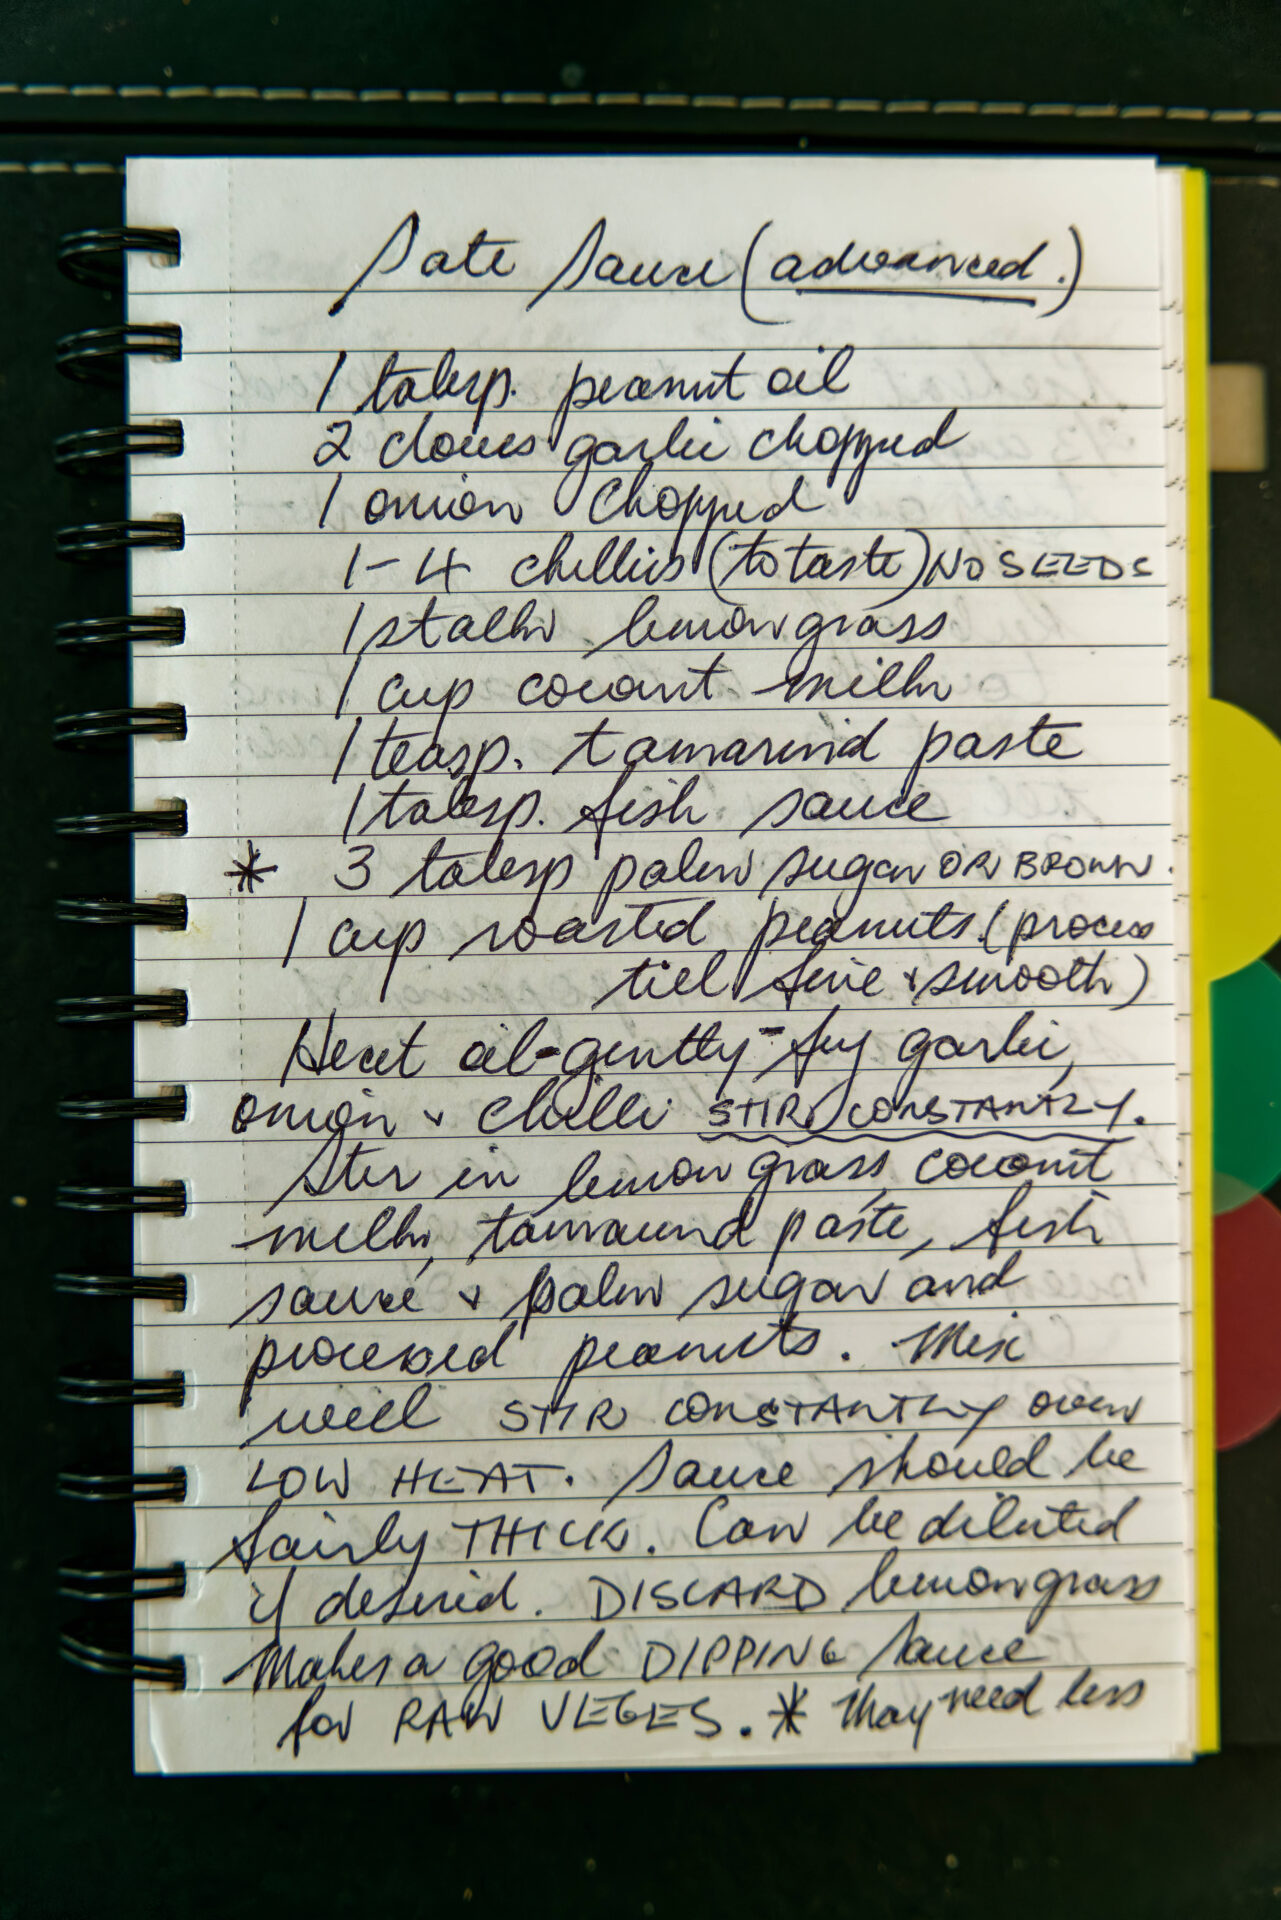 Sate Sauce (advanced.)
1 tablsp. peanut oil
2 cloves garlic chopped
1 onion chopped
1-4 chillies (to taste) NO SEEDS
1 stalk lemongrass
1 cup coconut milk
1 teasp. tamarind paste
1 tablsp. fish sauce
* 3 tablsp palm sugar OR BROWN.
1 cup roasted peanuts. (process
till fine + smooth)
Heat oil - gently - fry garlic,
onion + chilli STIR CONSTANTLY.
Stir in lemongrass, coconut
milk, tamarind paste, fish
sauce + palm sugar and
processed peanuts. Mix
well STIR CONSTANTLY over
LOW HEAT. Sauce should be
fairly THICK. Can be diluted
if desired. DISCARD lemongrass
Makes a good DIPPING Sauce
for RAW VEGES. * May need less